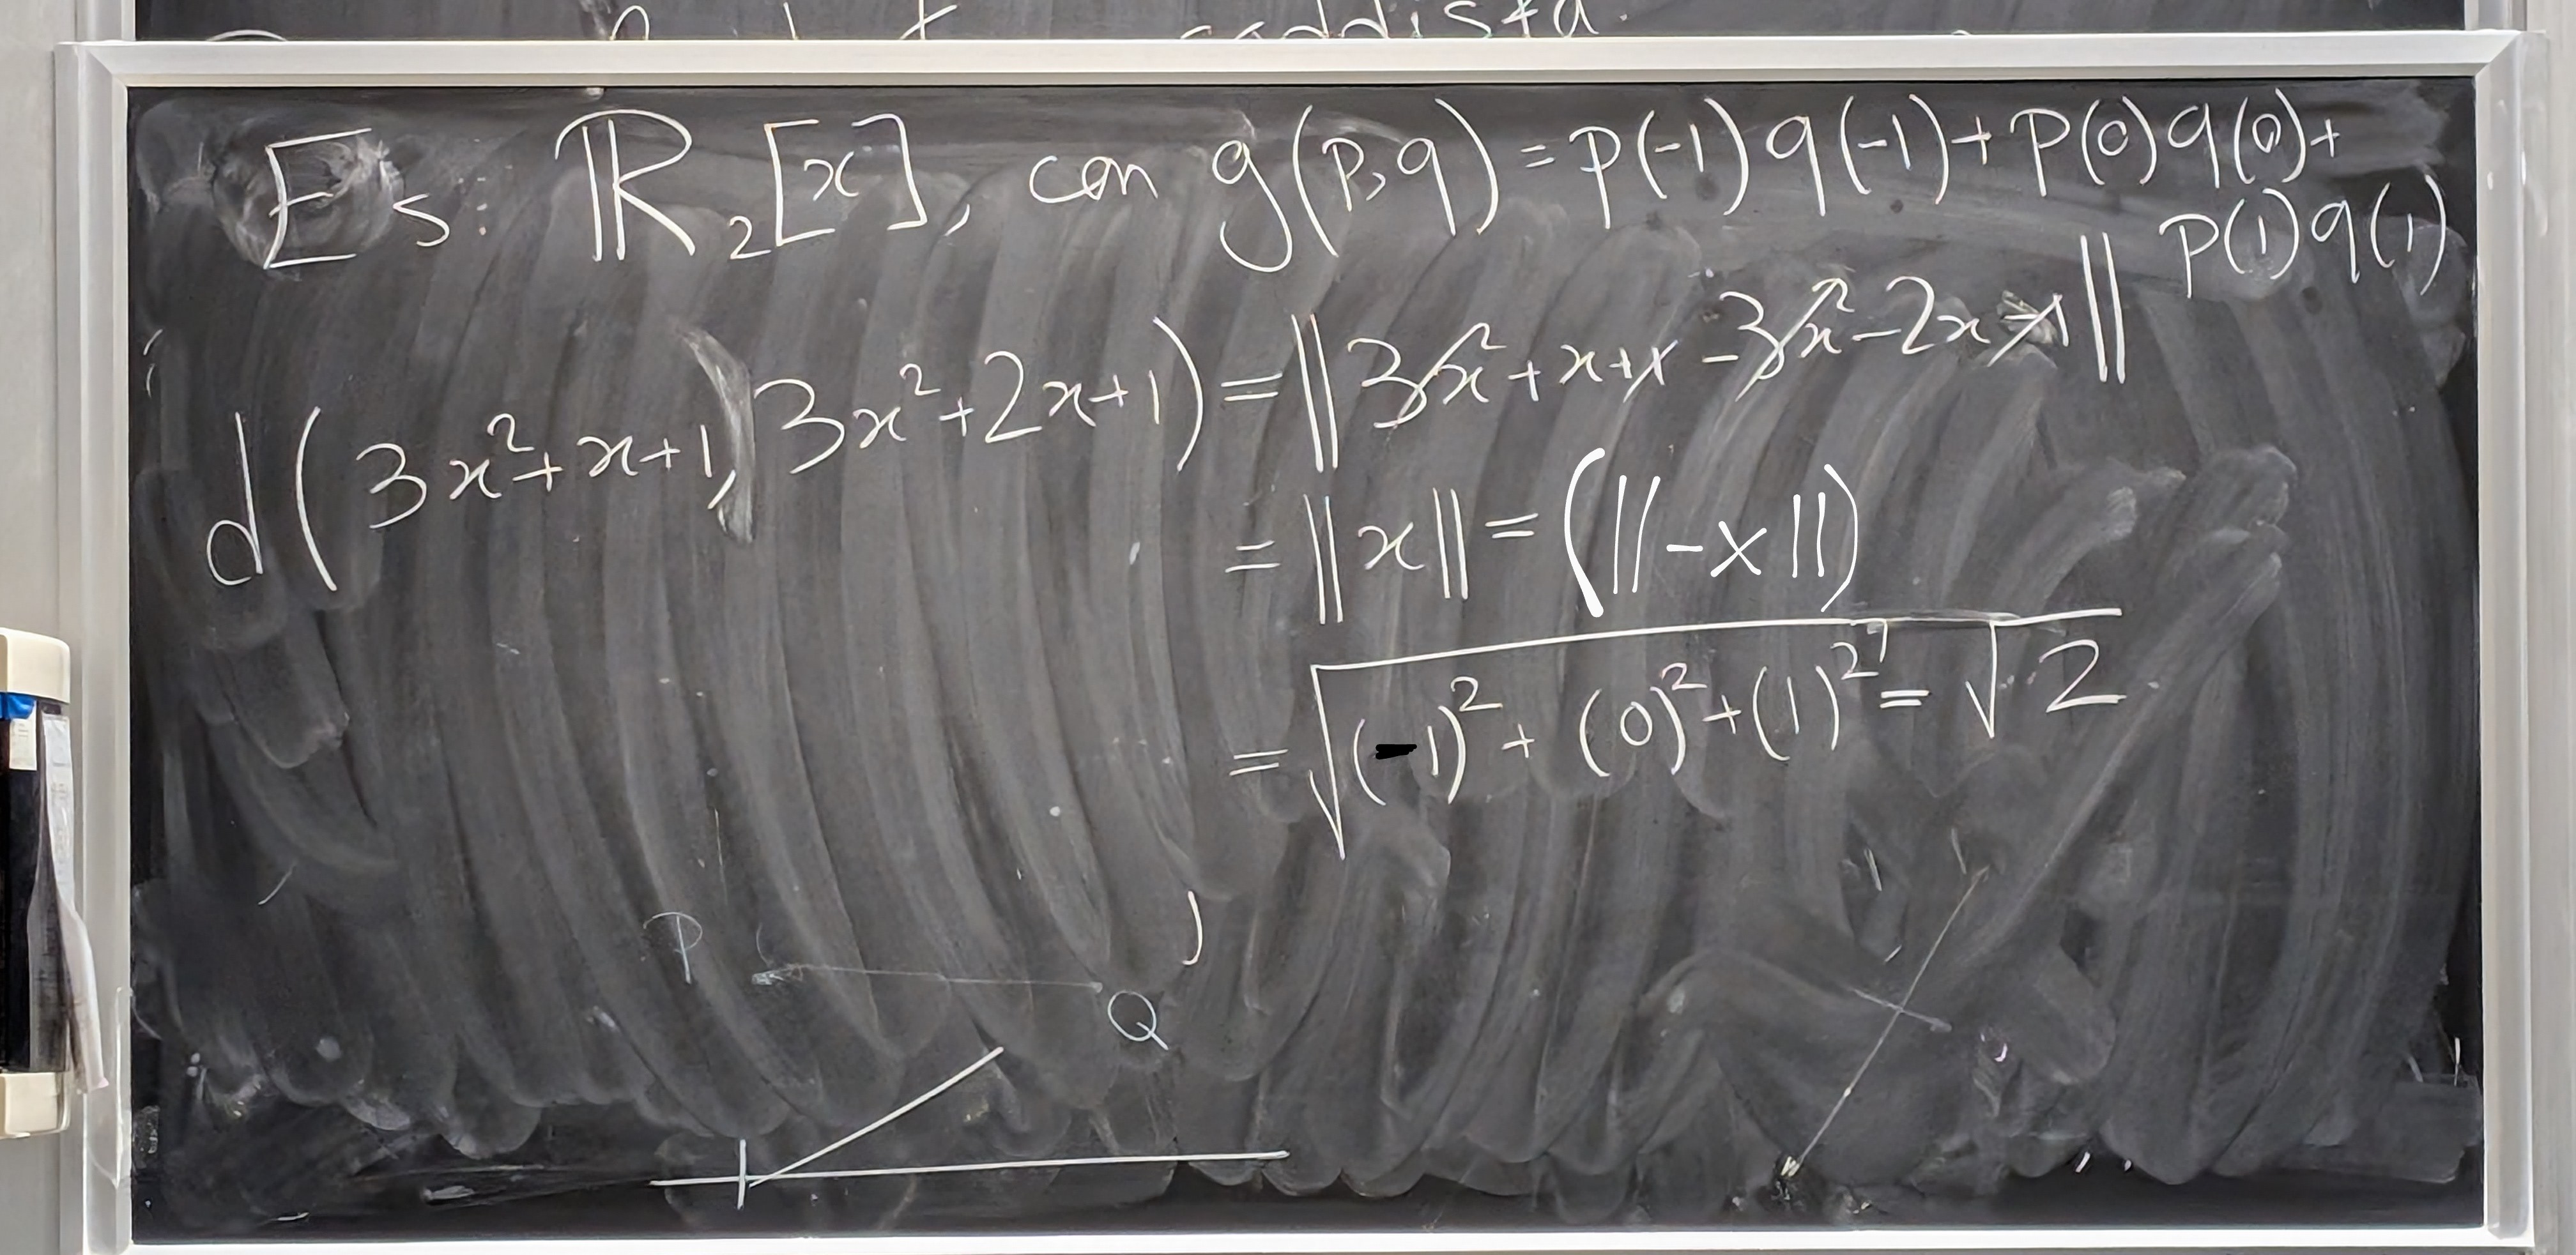 saddisfa.
Es: ℝ₂[x], con g(p,q) = p(-1)q(-1) + p(0)q(0) +
p(1)q(1)
d(3x²+x+1, 3x²+2x+1) = ‖3x²+x+1-3x²-2x-1‖
= ‖x‖ = (‖-x‖)
= √((-1)² + (0)² + (1)²) = √2
P
Q